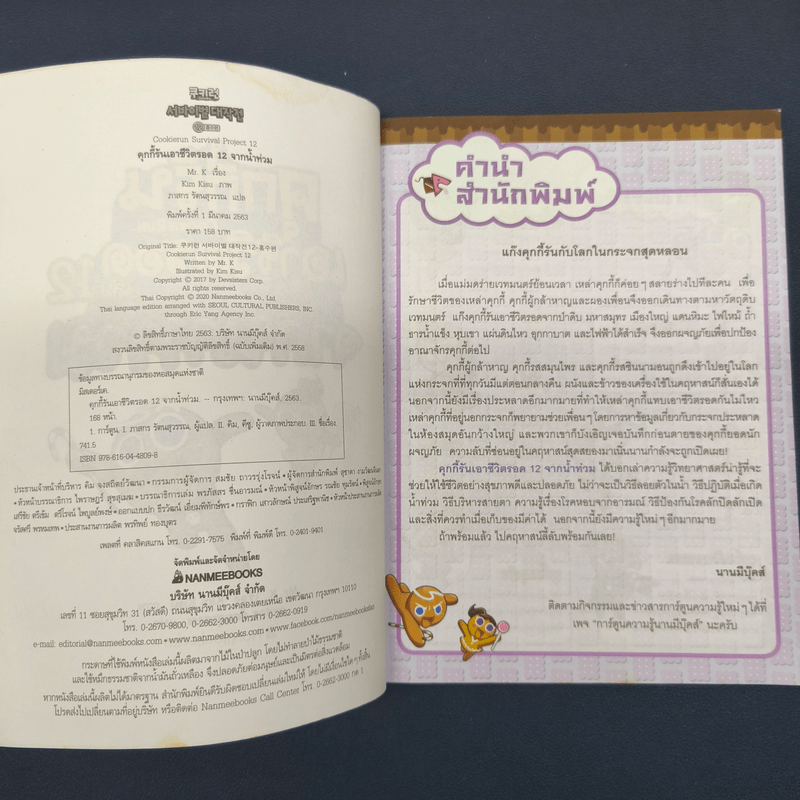 쿠키런
서바이벌 대작전
Cookierun Survival Project 12
คุกกี้รันเอาชีวิตรอด 12 จากน้ำท่วม
Mr. K เรื่อง
Kim Kisu ภาพ
ภาสกร รัตนสุวรรณ แปล
พิมพ์ครั้งที่ 1 มีนาคม 2563
ราคา 158 บาท
Original Title: 쿠키런 서바이벌 대작전12-홍수편
Cookierun Survival Project 12
Written by Mr. K
Illustrated by Kim Kisu
Copyright © 2017 by Devsisters Corp.
All rights reserved.
Thai Copyright © 2020 Nanmeebooks Co., Ltd.
Thai language edition arranged with SEOUL CULTURAL PUBLISHERS, INC.
through Eric Yang Agency, Inc.
© ลิขสิทธิ์ภาษาไทย 2563: บริษัท นานมีบุ๊คส์ จำกัด
สงวนลิขสิทธิ์ตามพระราชบัญญัติลิขสิทธิ์ (ฉบับเพิ่มเติม) พ.ศ. 2558
ข้อมูลทางบรรณานุกรมของหอสมุดแห่งชาติ
มิสเตอร์เค.
คุกกี้รันเอาชีวิตรอด 12 จากน้ำท่วม. -- กรุงเทพฯ: นานมีบุ๊คส์, 2563.
168 หน้า.
1. การ์ตูน. I. ภาสกร รัตนสุวรรณ, ผู้แปล. II. คิม, คีซู, ผู้วาดภาพประกอบ. III. ชื่อเรื่อง.
741.5
ISBN 978-616-04-4809-8
ประธานเจ้าหน้าที่บริหาร คิม จงสถิตย์วัฒนา • กรรมการผู้จัดการ สมชัย ถาวรรุ่งโรจน์ • ผู้จัดการสำนักพิมพ์ สุชาดา งามวัฒนจินดา
เพลตที่ คลาสิคสแกน โทร. 0-2291-7575 พิมพ์ที่ พิมพ์ดี โทร. 0-2401-9401
จัดพิมพ์และจัดจำหน่ายโดย
NANMEEBOOKS
บริษัท นานมีบุ๊คส์ จำกัด
เลขที่ 11 ซอยสุขุมวิท 31 (สวัสดี) ถนนสุขุมวิท แขวงคลองเตยเหนือ เขตวัฒนา กรุงเทพฯ 10110
โทร. 0-2670-9800, 0-2662-3000 โทรสาร 0-2662-0919
e-mail: editorial@nanmeebooks.com • www.nanmeebooks.com • www.facebook.com/nanmeebooksfan
กระดาษที่ใช้พิมพ์หนังสือเล่มนี้ผลิตมาจากไม้ในป่าปลูก โดยไม่ทำลายป่าไม้ธรรมชาติ
และใช้หมึกธรรมชาติจากน้ำมันถั่วเหลือง จึงปลอดภัยต่อมนุษย์และเป็นมิตรต่อสิ่งแวดล้อม
หากหนังสือเล่มนี้ผลิตไม่ได้มาตรฐาน สำนักพิมพ์ยินดีรับผิดชอบเปลี่ยนเล่มใหม่ให้ โดยไม่มีเงื่อนไขใดๆ ทั้งสิ้น
โปรดส่งไปเปลี่ยนตามที่อยู่บริษัท หรือติดต่อ Nanmeebooks Call Center โทร. 0-2662-3000 กด 1
คำนำ
สำนักพิมพ์
แก๊งคุกกี้รันกับโลกในกระจกสุดหลอน
เมื่อแม่มดร่ายเวทมนตร์ย้อนเวลา เหล่าคุกกี้ก็ค่อยๆ สลายร่างไปทีละคน เพื่อ
รักษาชีวิตของเหล่าคุกกี้ คุกกี้ผู้กล้าหาญและผองเพื่อนจึงออกเดินทางตามหาวัตถุดิบ
เวทมนตร์ แก๊งคุกกี้รันเอาชีวิตรอดจากป่าดิบ มหาสมุทร เมืองใหญ่ แดนหิมะ ไฟไหม้ ถ้ำ
ธารน้ำแข็ง หุบเขา แผ่นดินไหว อุกกาบาต และไฟฟ้าได้สำเร็จ จึงออกผจญภัยเพื่อปกป้อง
อาณาจักรคุกกี้ต่อไป
คุกกี้ผู้กล้าหาญ คุกกี้รสสมุนไพร และคุกกี้รสซินนามอนถูกดึงเข้าไปอยู่ในโลก
แห่งกระจกที่ที่ทุกวันมีแต่ตอนกลางคืน ผนังและข้าวของเครื่องใช้ในคฤหาสน์ก็สั่นเองได้
นอกจากนี้ยังมีเรื่องประหลาดอีกมากมายที่ทำให้เหล่าคุกกี้แทบเอาชีวิตรอดกันไม่ไหว
เหล่าคุกกี้ที่อยู่นอกกระจกก็พยายามช่วยเพื่อนๆ โดยการหาข้อมูลเกี่ยวกับกระจกประหลาด
ในห้องสมุดอันกว้างใหญ่ และพวกเขาก็บังเอิญเจอบันทึกก่อนตายของคุกกี้ยอดนัก
ผจญภัย ความลับที่ซ่อนอยู่ในคฤหาสน์สุดสยองมาเนิ่นนานกำลังจะถูกเปิดเผย!
คุกกี้รันเอาชีวิตรอด 12 จากน้ำท่วม ได้บอกเล่าความรู้วิทยาศาสตร์น่ารู้ที่จะ
ช่วยให้ใช้ชีวิตอย่างสุขภาพดีและปลอดภัย ไม่ว่าจะเป็นวิธีลอยตัวในน้ำ วิธีปฏิบัติเมื่อเกิด
น้ำท่วม วิธีบริหารสายตา ความรู้เรื่องโรคหอบจากอารมณ์ วิธีป้องกันโรคลักปิดลักเปิด
และสิ่งที่ควรทำเมื่อเก็บของมีค่าได้ นอกจากนี้ยังมีความรู้ใหม่ๆ อีกมากมาย
ถ้าพร้อมแล้ว ไปคฤหาสน์ลี้ลับพร้อมกันเลย!
นานมีบุ๊คส์
ติดตามกิจกรรมและข่าวสารการ์ตูนความรู้ใหม่ๆ ได้ที่
เพจ "การ์ตูนความรู้นานมีบุ๊คส์" นะครับ